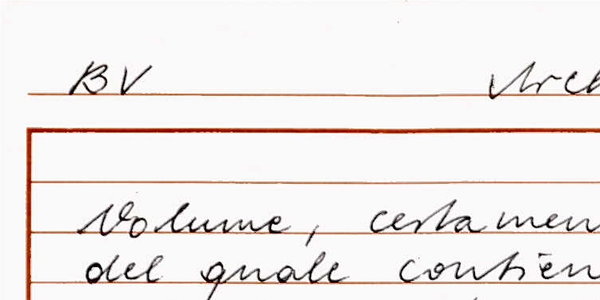 BV Arch
Volume, certamen
del quale contien